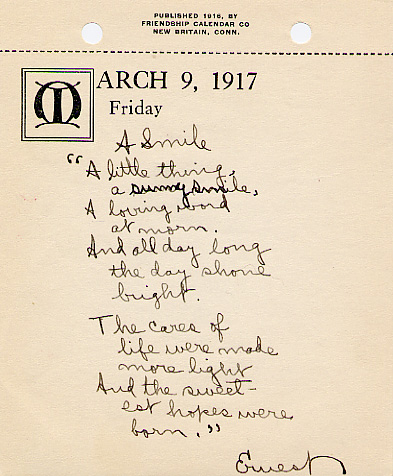 PUBLISHED 1916, BY
FRIENDSHIP CALENDAR CO
NEW BRITAIN, CONN.
MARCH 9, 1917
Friday
A Smile
"A little thing,
a sunny smile,
A loving word
at morn.
And all day long
the day shone
bright.
The cares of
life were made
more light
And the sweet-
est hopes were
born."
Ernest